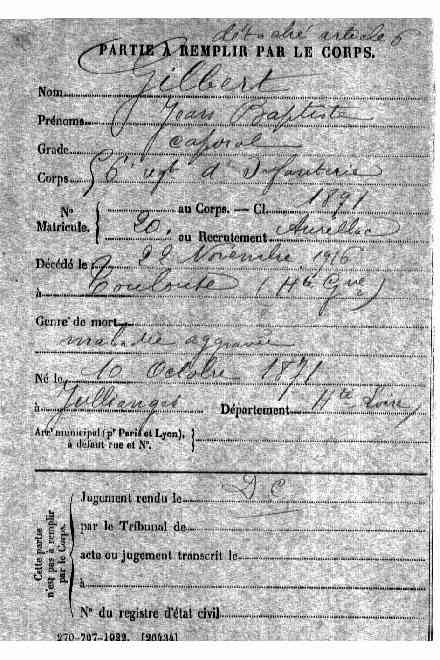 détaché article 6
PARTIE À REMPLIR PAR LE CORPS.
Nom Gilbert
Prénoms Jean Baptiste
Grade caporal
Corps 6e régt d'Infanterie
No Matricule. { au Corps. — Cl. 1891
20. ou Recrutement Aurillac
Décédé le 22 Novembre 1916
à Toulouse (Hte Gne)
Genre de mort
maladie aggravée
Né le 10 Octobre 1871
à Jullianges Département Hte Loire
Arrt municipal (pr Paris et Lyon),
à défaut rue et No.
Cette partie
n'est pas à remplir
par le Corps.
D C
Jugement rendu le
par le Tribunal de
acte ou jugement transcrit le
à
No du registre d'état civil
270-707-1922. [26434]